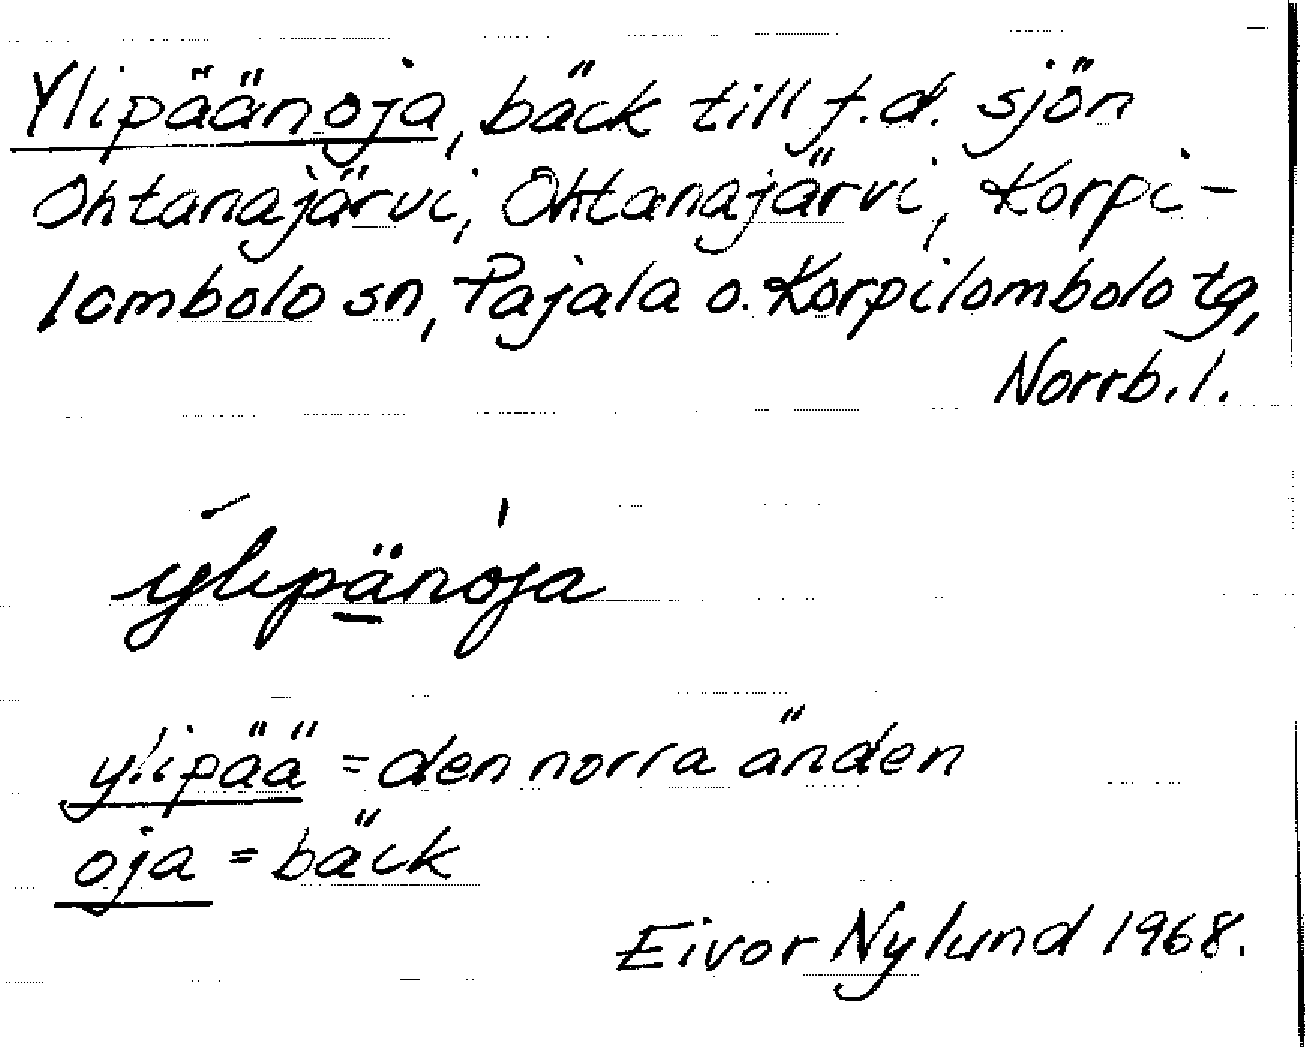 Ylipäänoja, bäck till f.d. sjön
Ohtanajärvi, Ohtanajärvi, Korpi-
lombolo sn, Pajala o. Korpilombolo tg,
Norrb.l.
ylipänoja
ylipää = den norra änden
oja = bäck
Eivor Nylund 1968.